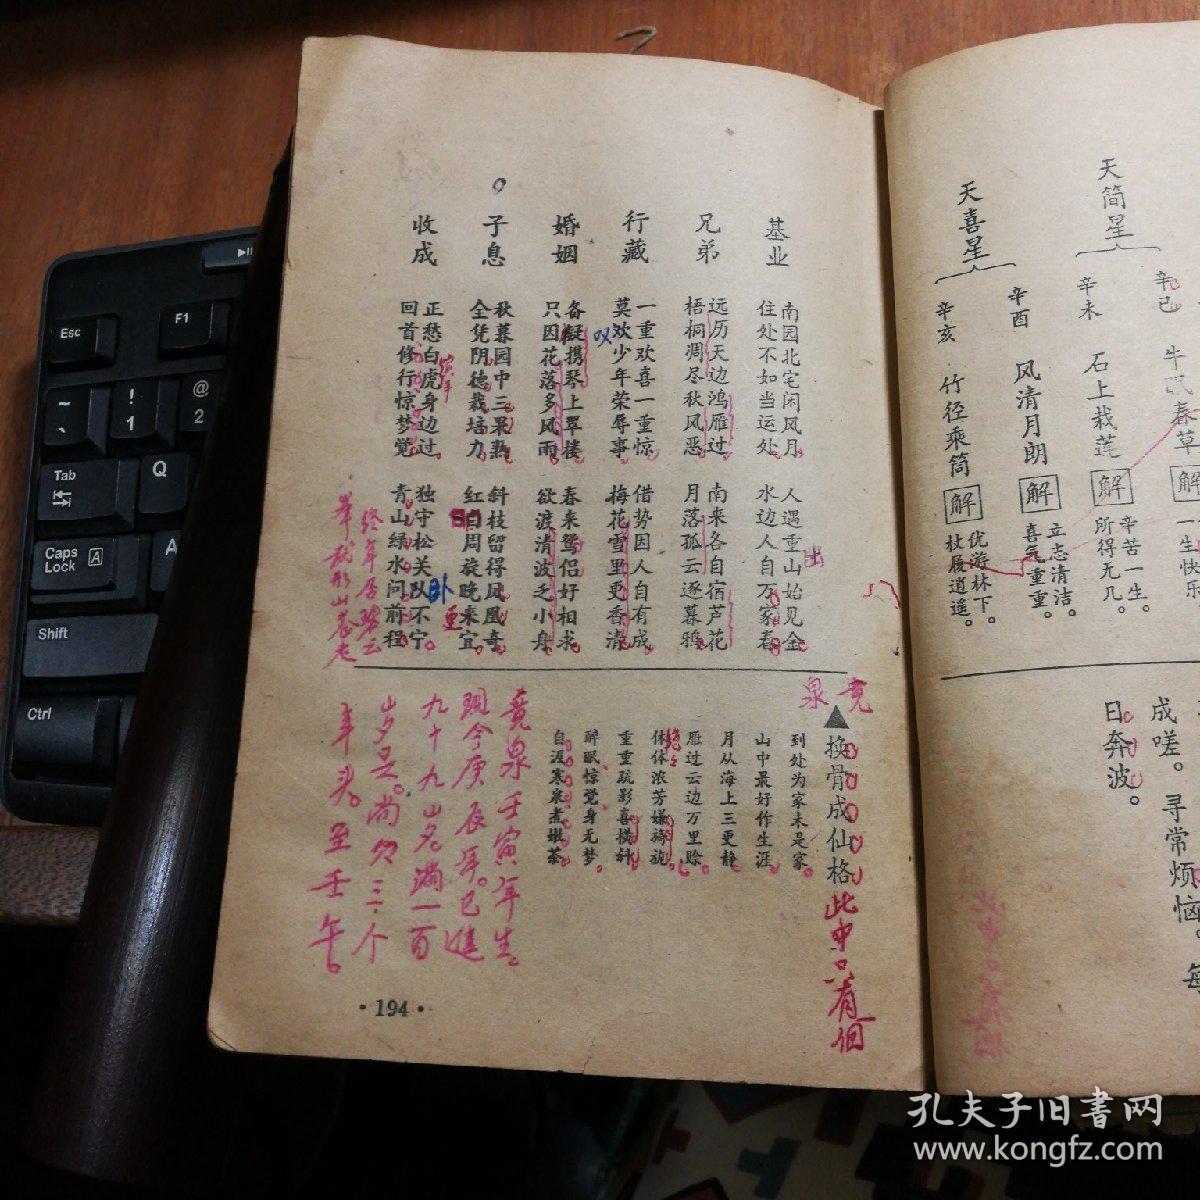 基业
南园北宅闲风月
住处不如当运处
人遇重山始见金
水边人自万家春
出
兄弟
远历天边鸿雁过
梧桐凋尽秋风恶
南来各自宿芦花
月落孤云逐暮鸦
行藏
一重欢喜一重惊
莫欢少年荣辱事
叹
借势因人自有成
梅花雪里更香清
婚姻
备凝携琴上翠楼
只因花落多风雨
春来鸳侣好相求
欲渡清波乏小舟
子息
秋暮园中三果熟
全凭阴德栽培力
斜枝留得凤凰奇
周旋晚来宜
收成
正愁白虎身边过
回首修行惊梦觉
寅年
独守松关队不宁
卧
青山绿水问前程
▲换骨成仙格
此中只有个
竟泉
到处为家未是家
山中最好作生涯
月从海上三更静
雁过云边万里赊
体浓芳嫌旖旎
重重疏影喜横斜
醉眠惊觉身无梦
自汲寒泉煮嫩茶
竟泉壬寅年生
现今庚辰年。已进
九十九岁。满一百
岁只。尚欠三个
年头。至壬午。
·194·
天简星
辛巳
牛眠春草
解
一生快乐
辛未
石上栽莲
解
辛苦一生。
所得无几。
天喜星
辛酉
风清月朗
解
立志清洁。
喜气重重。
辛亥
竹径乘筒
解
优游林下。
杖履逍遥。
成嗟。寻常烦恼。每
日奔波。
Esc
F1
~
!
1
@
2
Tab
Q
Caps Lock
A
A
Shift
Ctrl
孔夫子旧书网
www.kongfz.com